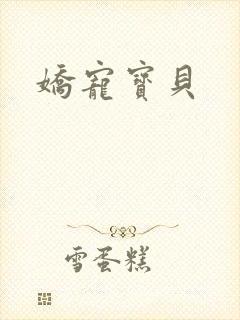 嬌寵寶貝
雪蛋糕